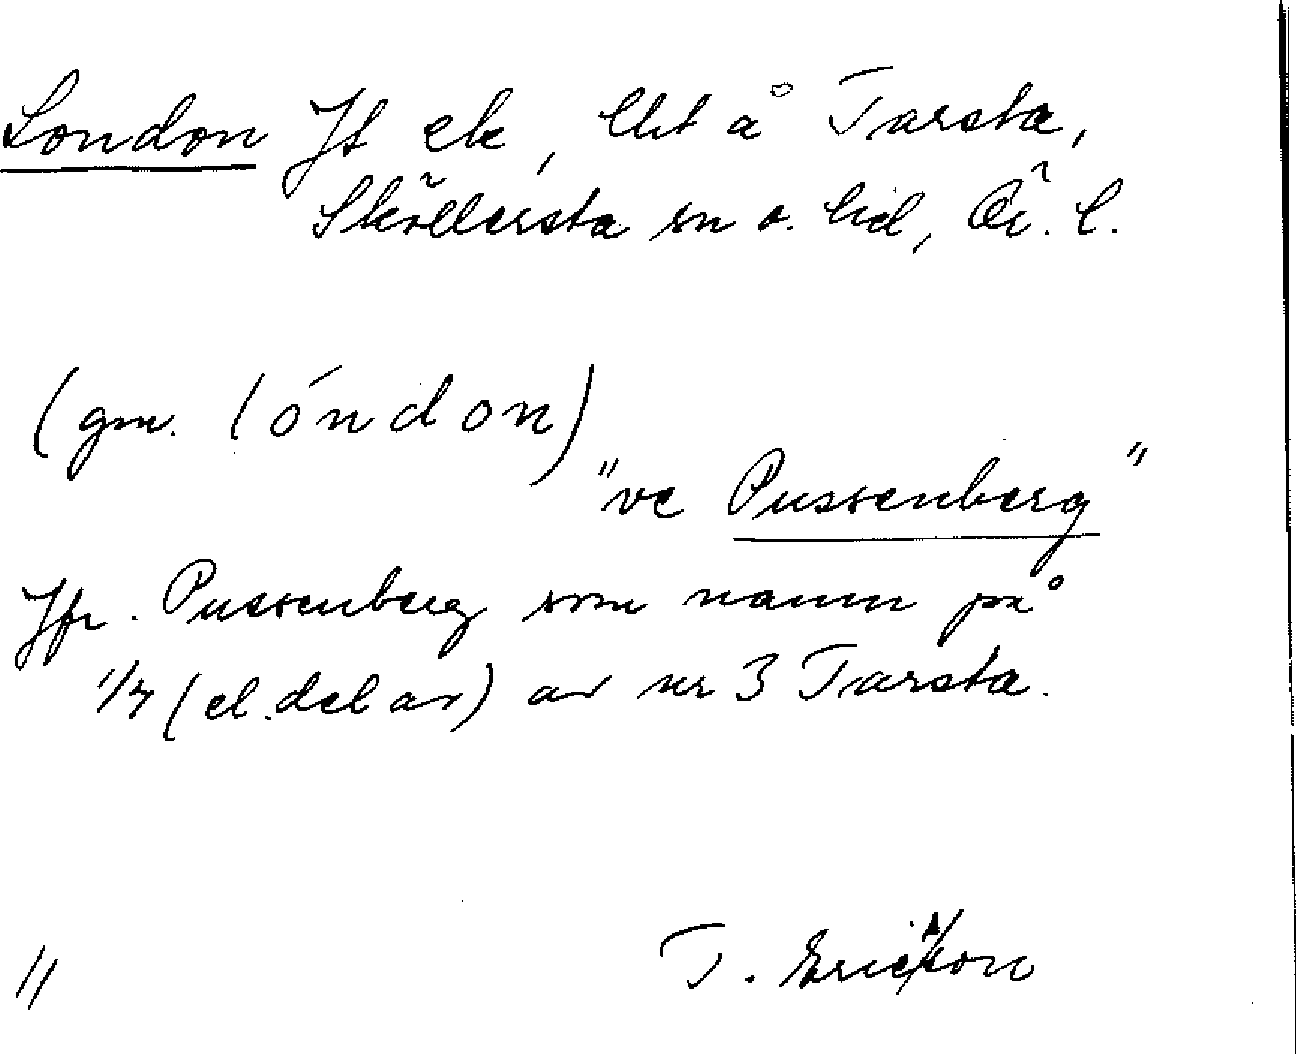 London Jf ek, lht å Tarsta,
Sköllersta sn o. hd, Ör. l.
(gm. lóndon)
"ve Pussenberg"
Jfr. Pussenberg som namn på
1/4 (el. del av) av nr 3 Tarsta.
T. Ericsson